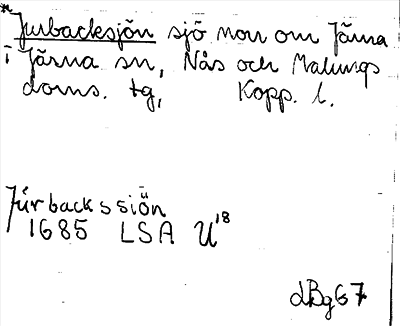 *Jurbacksjön sjö norr om Järna
i Järna sn, Nås och Malungs
doms. tg, Kopp. l.
Júrbackssiön
1685 LSA U18
dBg67